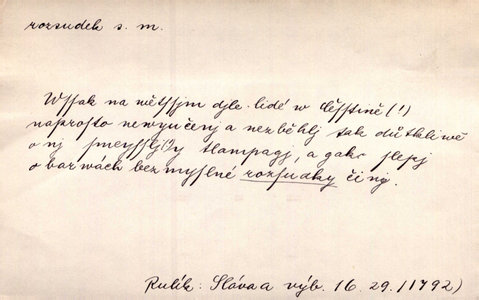 rozsudek s. m.
Wssak na wětssjm djle lidé w Čésstině (!)
naprosto newyučenj a nezběhlj tak důtkliwě
o nj smeysslj tlampagj, a gako slepj
o barwách bezmyslné rozsudky činj.
Rulík: Sláva a výb. 16. 29. (1792)